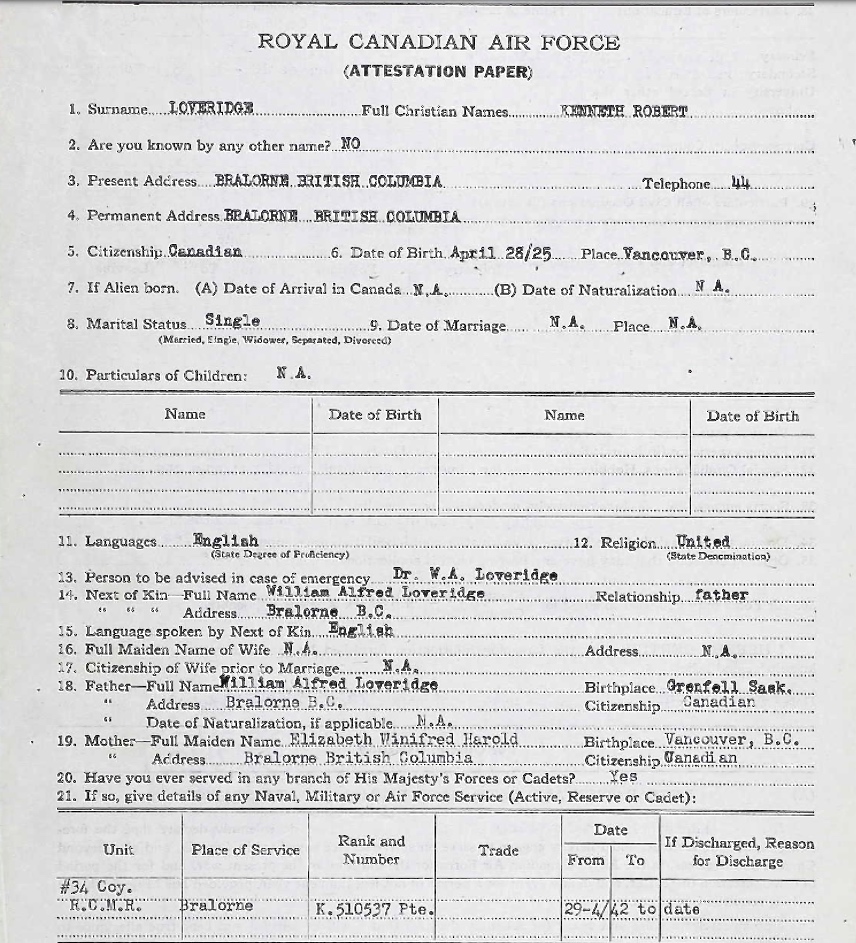 ROYAL CANADIAN AIR FORCE
(ATTESTATION PAPER)
1. Surname LOVERIDGE Full Christian Names KENNETH ROBERT
2. Are you known by any other name? NO
3. Present Address BRALORNE BRITISH COLUMBIA Telephone 44
4. Permanent Address BRALORNE BRITISH COLUMBIA
5. Citizenship Canadian 6. Date of Birth April 28/25 Place Vancouver, B.C.
7. If Alien born. (A) Date of Arrival in Canada N.A. (B) Date of Naturalization N A.
8. Marital Status Single 9. Date of Marriage N.A. Place N.A.
(Married, Single, Widower, Separated, Divorced)
10. Particulars of Children: N.A.
Name Date of Birth Name Date of Birth
11. Languages English 12. Religion United
(State Degree of Proficiency) (State Denomination)
13. Person to be advised in case of emergency Dr. W.A. Loveridge
14. Next of Kin—Full Name William Alfred Loveridge Relationship father
“ “ “ Address Bralorne B.C.
15. Language spoken by Next of Kin English
16. Full Maiden Name of Wife N.A. Address N.A.
17. Citizenship of Wife prior to Marriage N.A.
18. Father—Full Name William Alfred Loveridge Birthplace Grenfell Sask.
“ Address Bralorne B.C. Citizenship Canadian
“ Date of Naturalization, if applicable N.A.
19. Mother—Full Maiden Name Elizabeth Winifred Harold Birthplace Vancouver, B.C.
“ Address Bralorne British Columbia Citizenship Canadian
20. Have you ever served in any branch of His Majesty's Forces or Cadets? Yes
21. If so, give details of any Naval, Military or Air Force Service (Active, Reserve or Cadet):
Unit Place of Service Rank and Number Trade Date From To If Discharged, Reason for Discharge
#34 Coy.
R.C.M.R. Bralorne K.510537 Pte. 29-4/42 to date